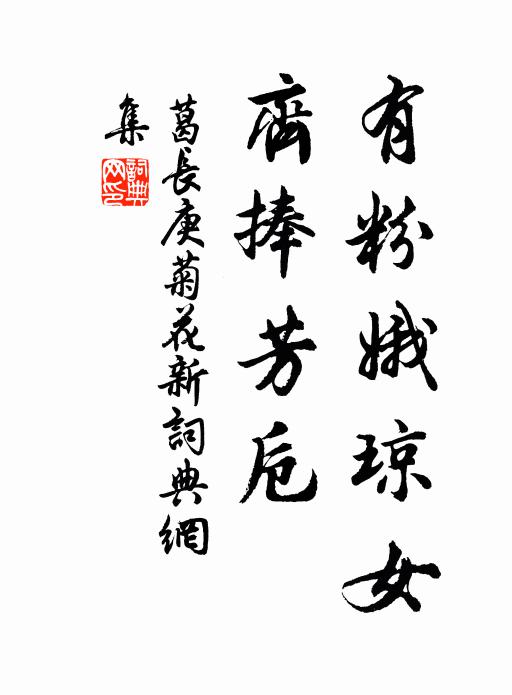 有粉娥琼女
齊捧芳卮
葛長庚菊花新詞典網
集
詞典網印